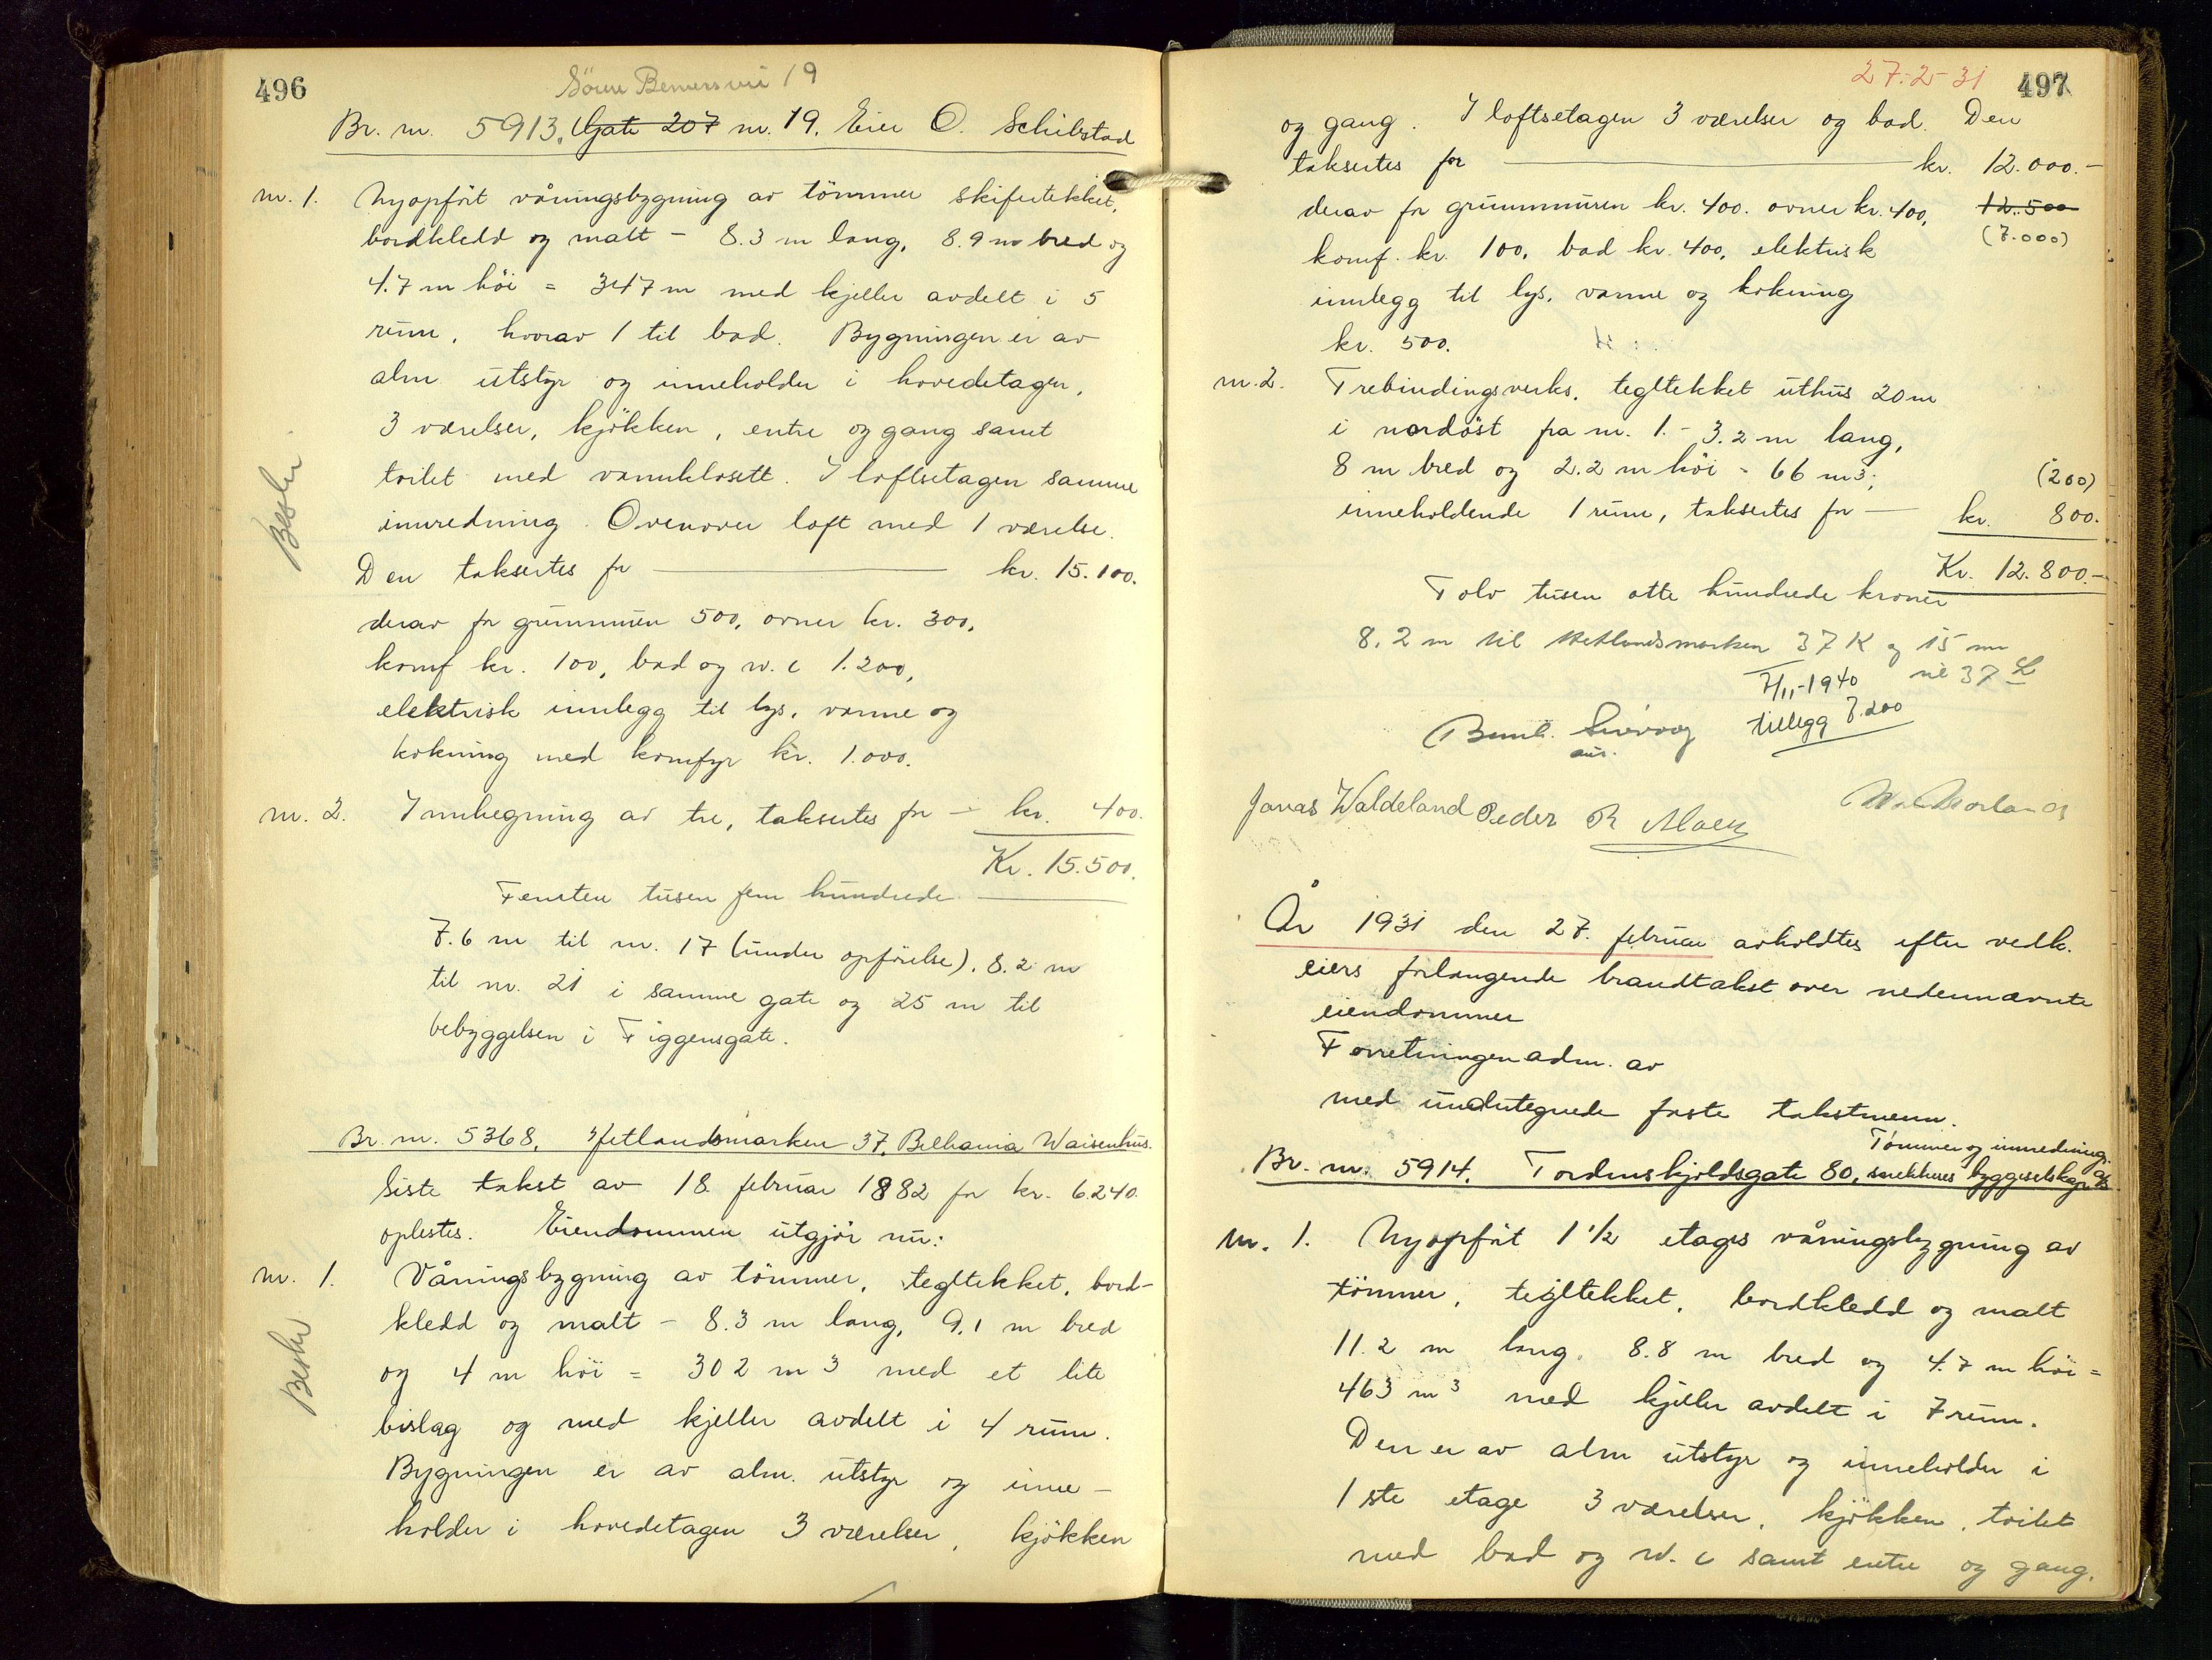 496
19
Br. nr. 5913. Gate 207 nr. 19. Eier O. Schibstad
nr. 1. Nyopført våningsbygning av tømmer skifertekket,
bordkledd og malt - 8.3 m lang, 8.9 m bred og
4.7 m høi = 347 m med kjeller avdelt i 5
rum, hvorav 1 til bad. Bygningen er av
alm utstyr og inneholder i hovedetagen,
3 værelser, kjøkken, entre og gang samt
toilet med vannklosett. I loftsetagen samme
innredning. Ovenover loft med 1 værelse.
Den taksertes for kr. 15.100.
derav for grunnmur 500, ovner kr. 300,
komf kr. 100, bad og w. c 1.200,
elektrisk innlegg til lys, varme og
kokning med komfyr kr. 1.000.
nr. 2. Innhegning av tre, taksertes for - kr. 400.
Kr. 15.500.
Femten tusen fem hundrede
7.6 m til nr. 17 (under opførelse). 8.2 m
til nr. 21 i samme gate og 25 m til
bebyggelsen i Figgensgate.
Br. nr. 5368. Hetlandsmarken 37. Bethania Waisenhus.
Siste takst av 18. februar 1882 for kr. 6.240.
oplestes. Eiendommen utgjør nu:
nr. 1. Våningsbygning av tømmer, tegltekket, bord-
kledd og malt - 8.3 m lang, 9.1 m bred
og 4 m høi = 302 m3 med et lite
bislag og med kjeller avdelt i 4 rum.
Bygningen er av alm. utstyr og inne-
holder i hovedetagen 3 værelser, kjøkken
27-2-31 497
og gang. I loftsetagen 3 værelser og bad. Den
taksertes for kr. 12.000.-
derav for grunnmuren kr. 400. ovner kr. 400, 12.500
(7.000)
komf. kr. 100, bad kr. 400, elektrisk
innlegg til lys, varme og kokning
kr. 500.
nr. 2. Trebindingsverks, tegltekket uthus 20 m
i nordøst fra nr. 1. - 3.2 m lang,
8 m bred og 2.2 m høi - 66 m3;
(200)
inneholdende 1 rum, taksertes for - kr. 800.
Kr. 12.800.-
Tolv tusen otte hundrede kroner
8.2 m til Hetlandsmarken 37 K og 15 m
til 37 L
7/11-1940
tillegg 7.200
Jonas Waldeland Peder R
År 1931 den 27. februar avholdtes efter vedk.
eiers forlangende brandtakst over nedennævnte
eiendommer
Forretningen adm. av
med undertegnede faste takstmenn.
Tømmer og innrednings
Br. nr. 5914. Tordenskjoldsgate 80, snekkeres byggeselskap A/S
nr. 1. Nyopført 1 1/2 etages våningsbygning av
tømmer, tegltekket, bordkledd og malt
11.2 m lang, 8.8 m bred og 4.7 m høi =
463 m3 med kjeller avdelt i 7 rum.
Den er av alm utstyr og inneholder i
1ste etage 3 værelser, kjøkken, toilet
med bad og w. c samt entre og gang.